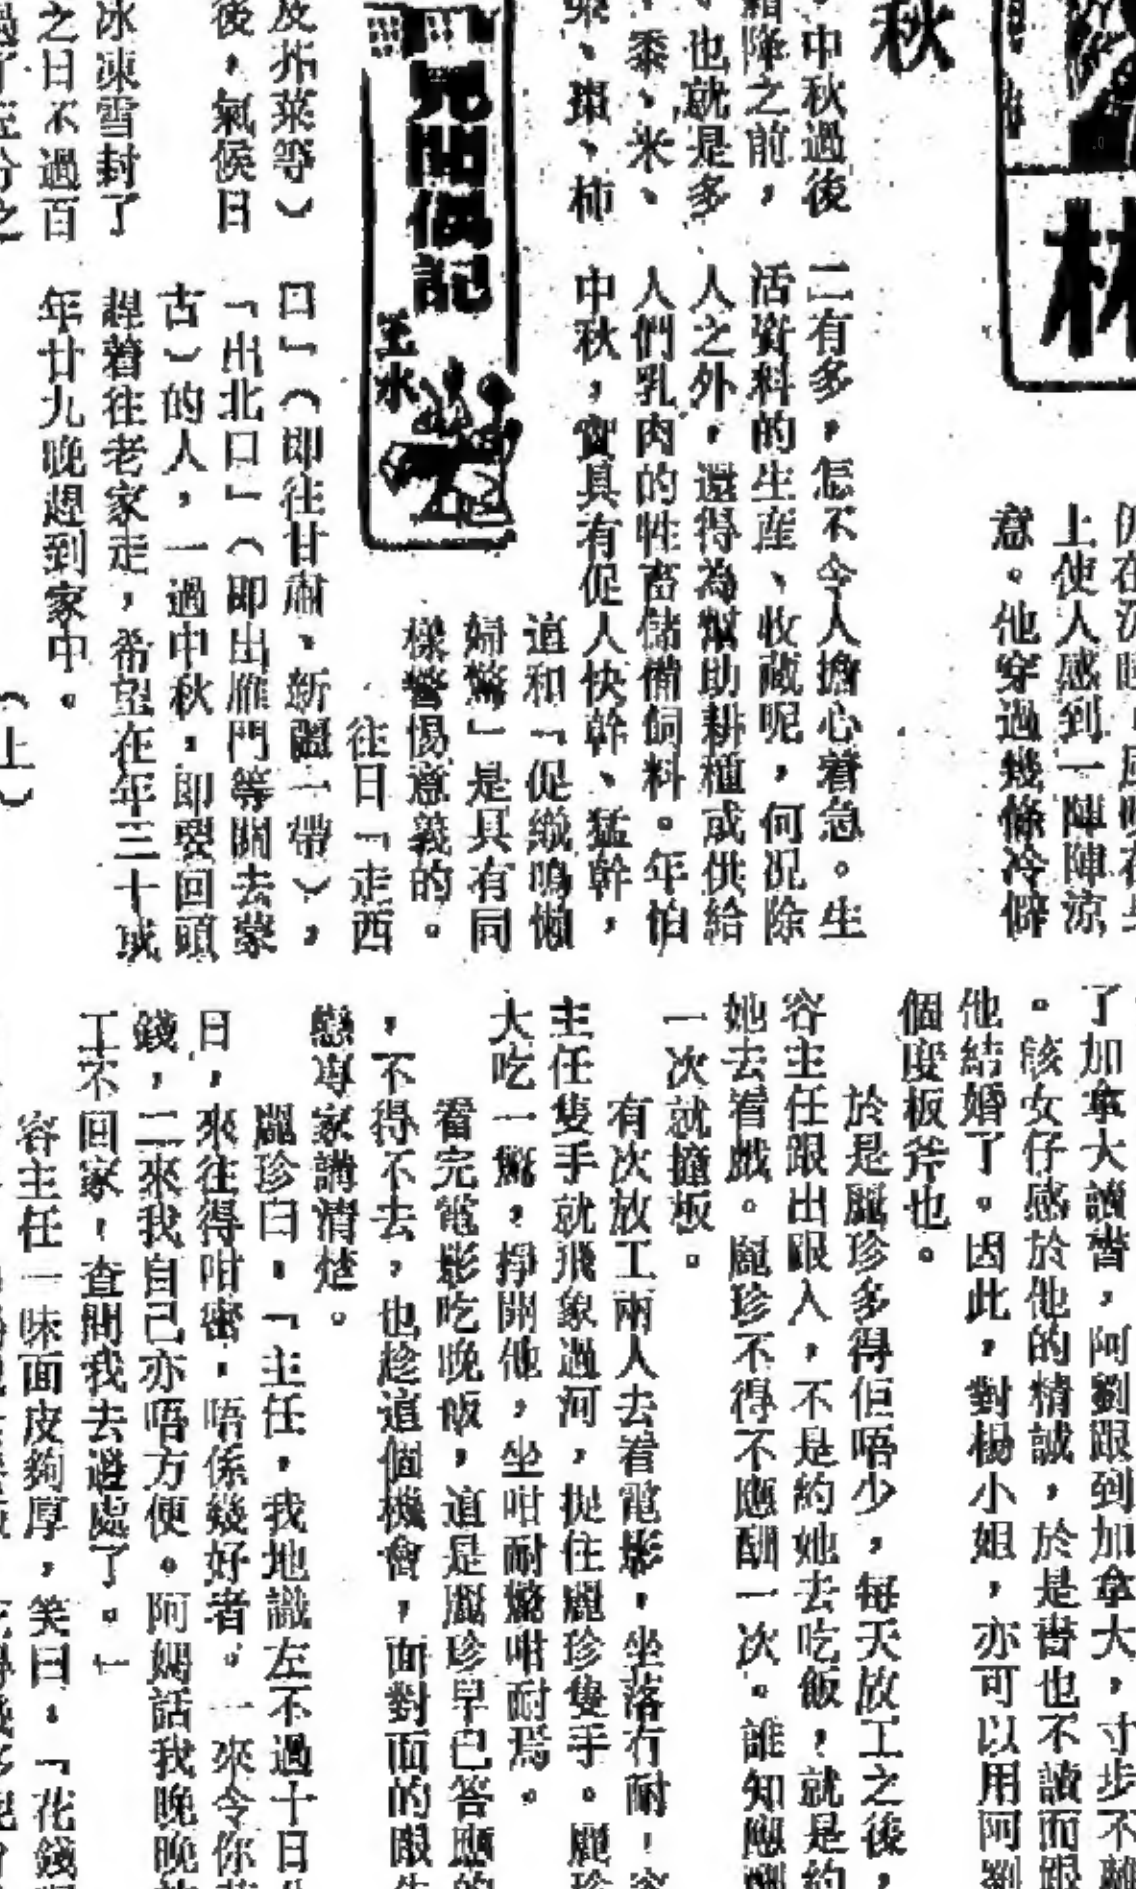 林
秋
上使人感到一陣陣涼
意。他穿過幾條冷僻
中秋過後
霜降之前，
、也就是多
、黍、米、
、棗、柿
二有多，怎不令人擔心着急。生
活資料的生産、收藏呢，何況除
人之外，還得為幫助耕種或供給
人們乳肉的牲畜儲備飼料。年怕
中秋，實具有促人快幹、猛幹，
這和「促織鳴懶
婦驚」是具有同
樣警惕意義的。
往日「走西
見聞偶記
王水
及芥菜等）
後，氣候日
冰凍雪封了
之日不過百
口」（即往甘肅、新疆一帶），
「出北口」（即出雁門等關去蒙
古）的人，一過中秋，即要回頭
趕着往老家走，希望在年三十或
年廿九晚趕到家中。
（上）
了加拿大讀書，阿劉跟到加拿大，寸步不離
。該女仔感於他的精誠，於是書也不讀而跟
他結婚了。因此，對楊小姐，亦可以用阿劉
個度板斧也。
於是麗珍多得佢唔少，每天放工之後，
容主任跟出跟入，不是約她去吃飯，就是約
她去看戲。麗珍不得不應酬一次。誰知應酬
一次就撞板。
有次放工兩人去看電影，坐落冇耐，容
主任隻手就飛象過河，捉住麗珍隻手。麗珍
大吃一驚，掙開他，坐咁耐驚咁耐焉。
看完電影吃晚飯，這是麗珍早已答應的
，不得不去，也趁這個機會，面對面的跟
戀專家講清楚。
麗珍曰：「主任，我地識左不過十日
日，來往得咁密，唔係幾好者。一來令你
錢，二來我自己亦唔方便。阿媽話我晚晚
工不回家，查問我去邊處了。」
容主任一味面皮夠厚，笑曰：「花錢